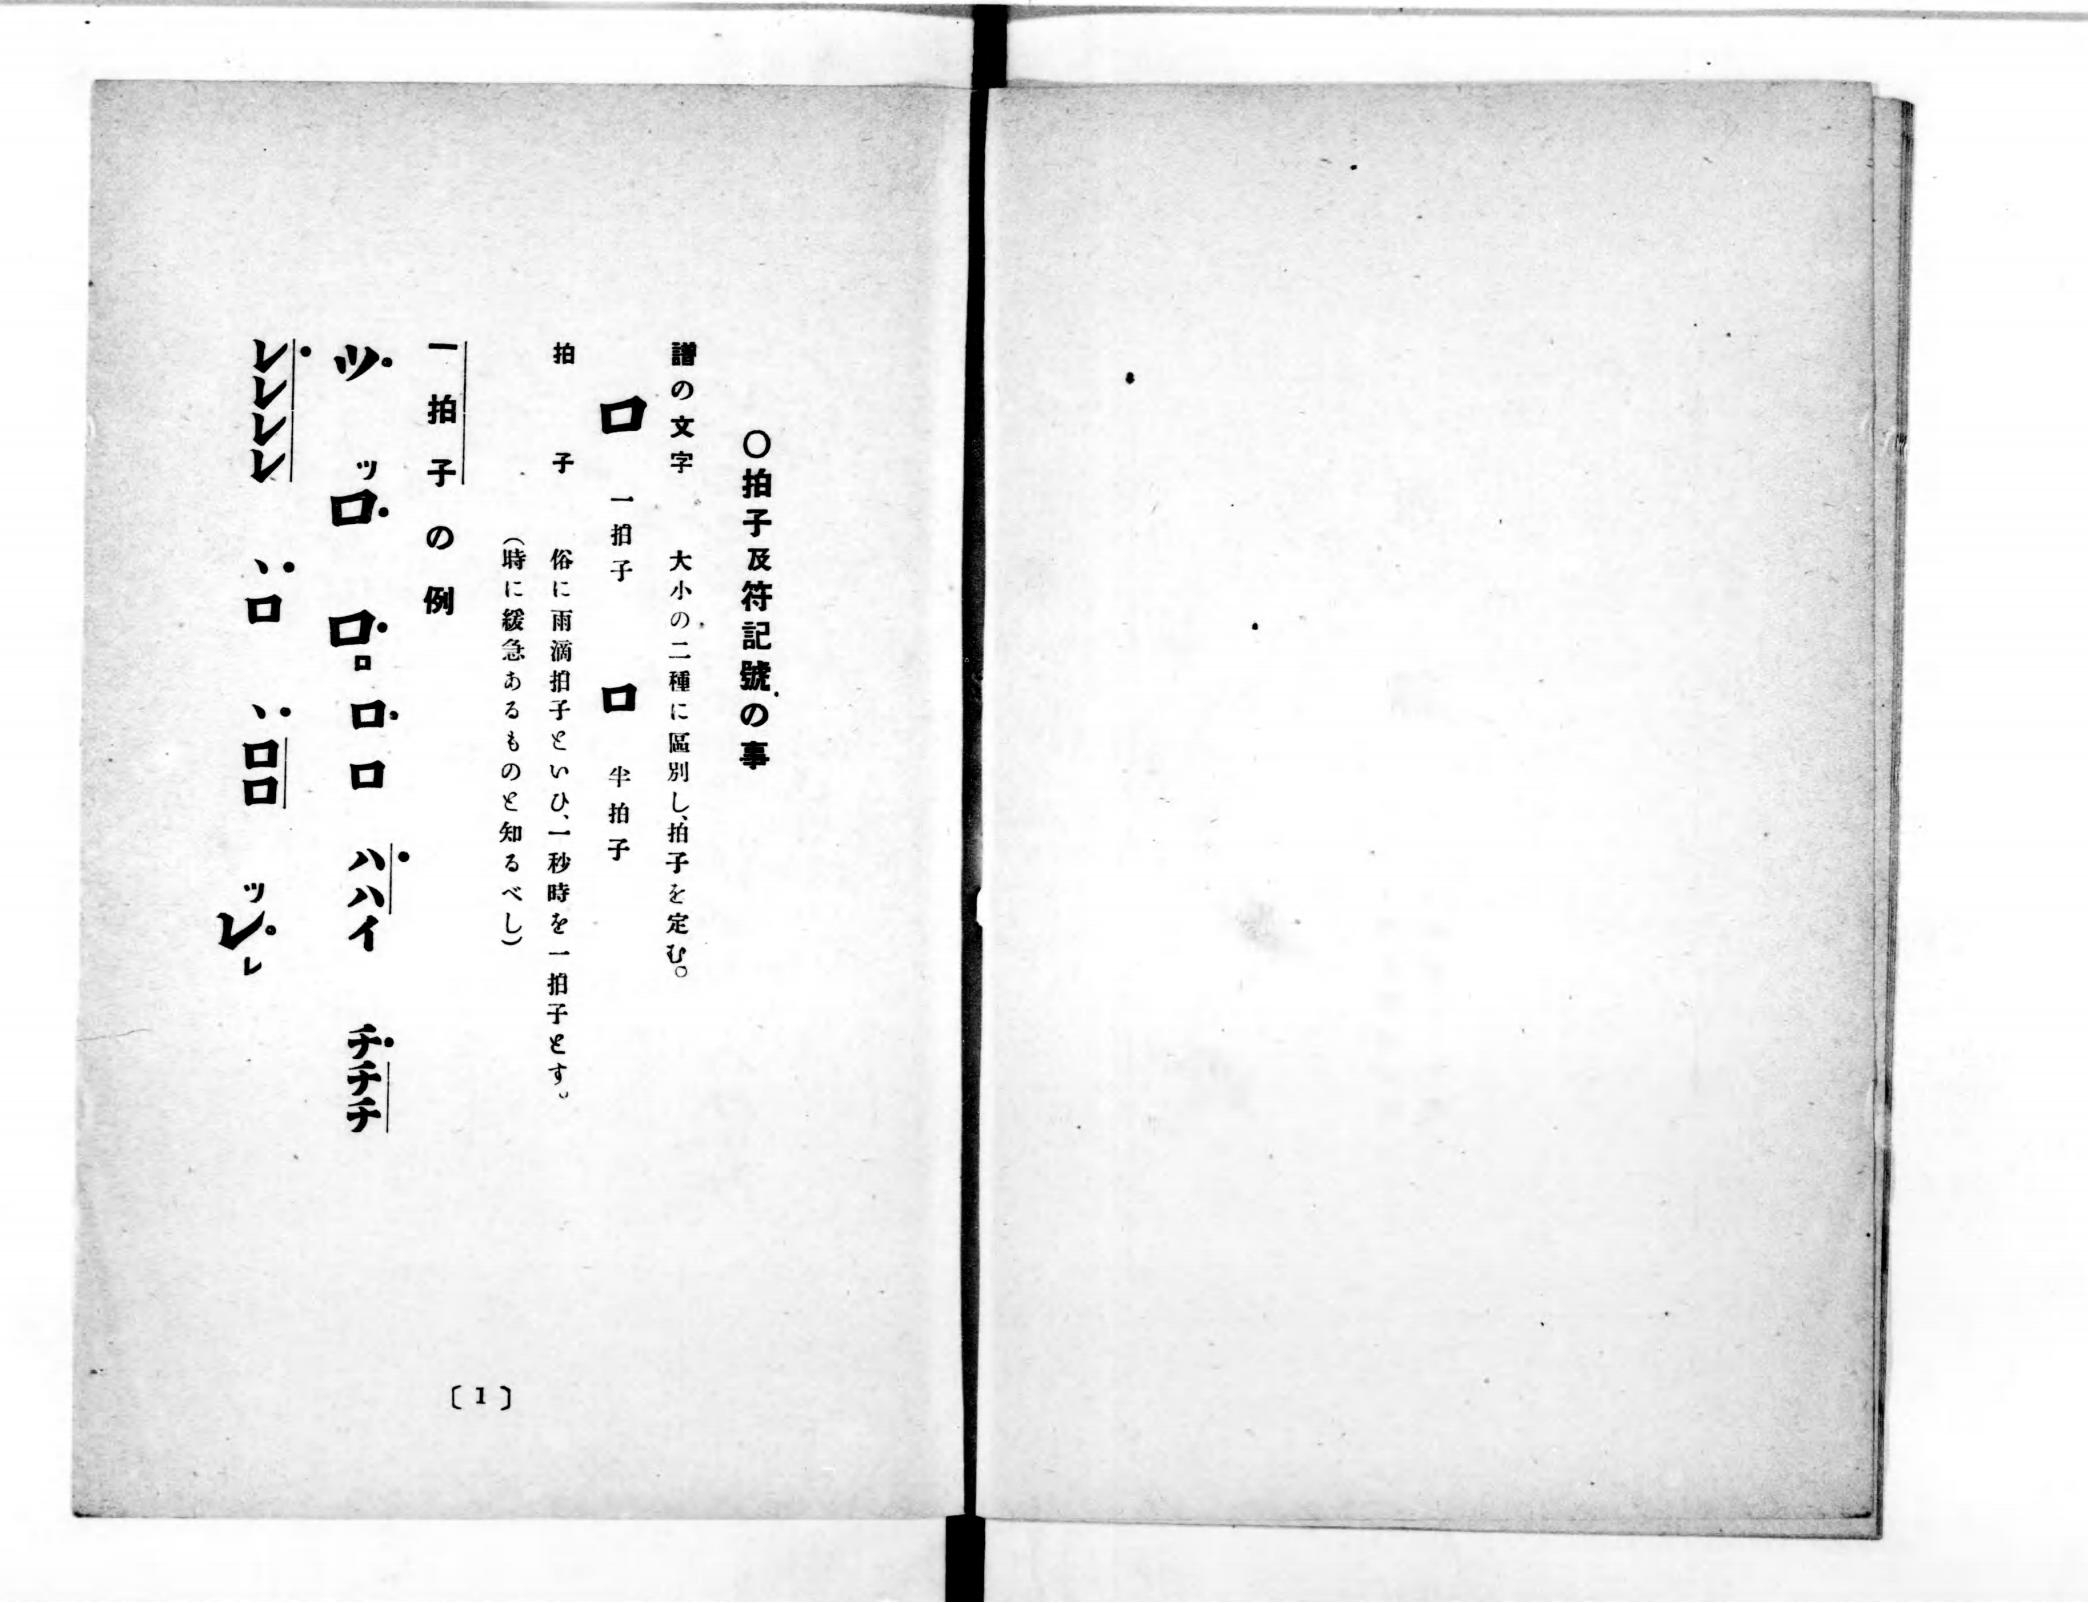 〇拍子及符記號の事
譜の文字　大小の二種に區別し、拍子を定む。
ロ　一拍子　ロ　半拍子
拍子　俗に雨滴拍子といひ、一秒時を一拍子とす。
（時に緩急あるものと知るべし）
一拍子の例
ツ　ッロ　ロロ　ロロ　ハハイ　チチチ
レレレレ　、ロ　、ロロ　ッレレ
〔1〕